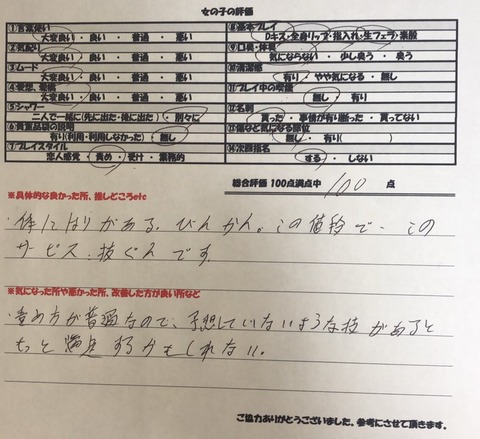 女の子の評価
①言葉使い
大変良い・良い・普通・悪い
②気配り
大変良い・良い・普通・悪い
③ムード
大変良い・良い・普通・悪い
④愛想、愛嬌
大変良い・良い・普通・悪い
⑤シャワー
二人で一緒に(先に出た・後に出た)・別々に
⑥貴重品袋の説明
有り(利用・利用しなかった)・無し
⑦プレイスタイル
恋人感覚・責め・受け・業務的
⑧基本プレイ
Dキス・全身リップ・指入れ・生フェラ・素股
⑨口臭・体臭
気にならない・少し臭う・臭う
⑩清潔感
有り・やや気になる・無し
⑪プレイ中の喫煙
無し・有り
⑫名刺
貰った・事情が有り断った・貰ってない
⑬傷など気になる部位
無し・有り( )
⑭次回指名
する・しない
総合評価 100点満点中 100 点
※具体的な良かった所、推しどころetc
・体にはりがある。びんかん。この値段で、この
サービス、抜ぐんです。
※気になった所や悪かった所、改善した方が良い所など
・責め方が普通なので、予想していないような技があると
もっと満足するかもしれない。
ご協力ありがとうございました。参考にさせて頂きます。